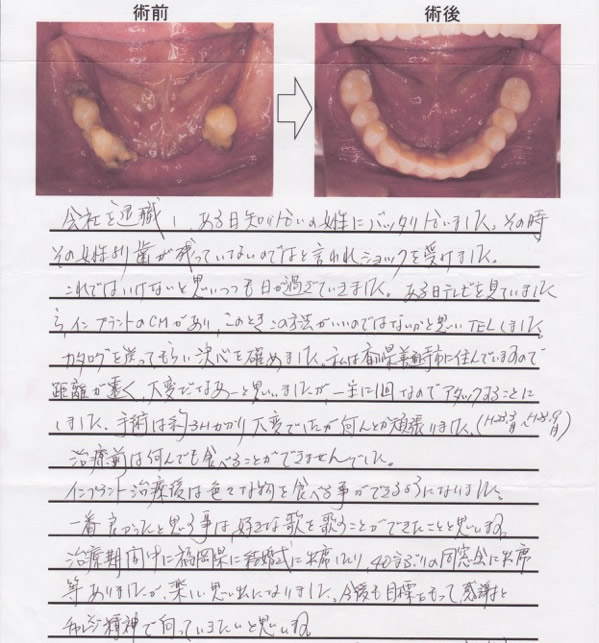 術前 術後
会社を退職し、ある日知り合いの女性にバッタリ会いました。その時
その女性より歯が残っていないのではと言われショックを受けました。
これではいけないと思いつつも日が過ぎていきました。ある日テレビを見ていました
ら、インプラントのCMがあり、このときこの方法がいいのではないかと思いTELしました。
カタログを送ってもらい決心を確めました。私は香川県に住んでいますので
距離が遠く、大変だなあーと思いましたが、一生に1回なのでアタックすることに
しました。手術は約3Hかかり大変でしたが何とか頑張りました。
治療前は何んでも食べることができませんでした。
インプラント治療後は色々な物を食べる事ができるようになりました。
一番良かったと思う事は、好きな歌を歌うことができたことと思います。
治療期間中に福岡県に結婚式に出席したり、40年ぶりの同窓会に出席
等ありましたが、楽しい思い出になりました。今後も目標をもって、感謝と
チャレンジ精神で向っていきたいと思います。